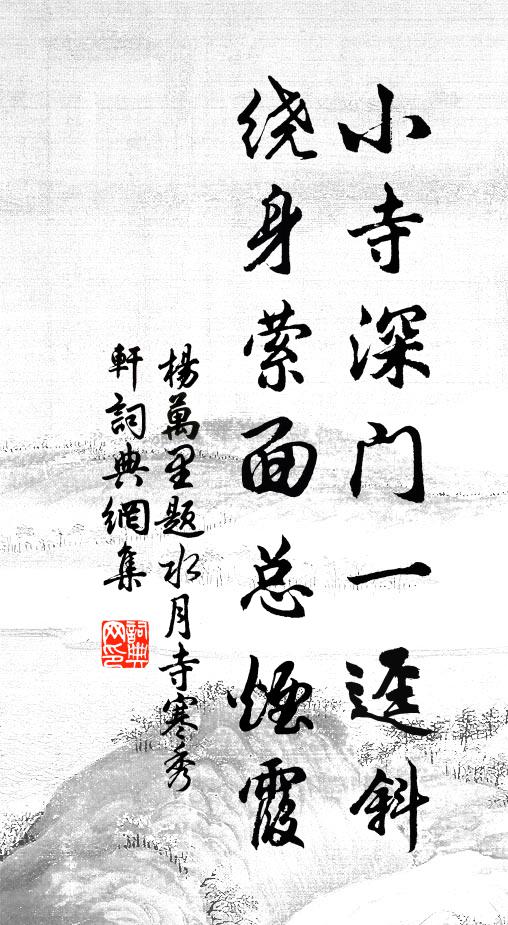 小寺深门一迳斜
绕身萦面总烟霞
楊萬里题水月寺寒秀
軒詞典網集
詞典网印